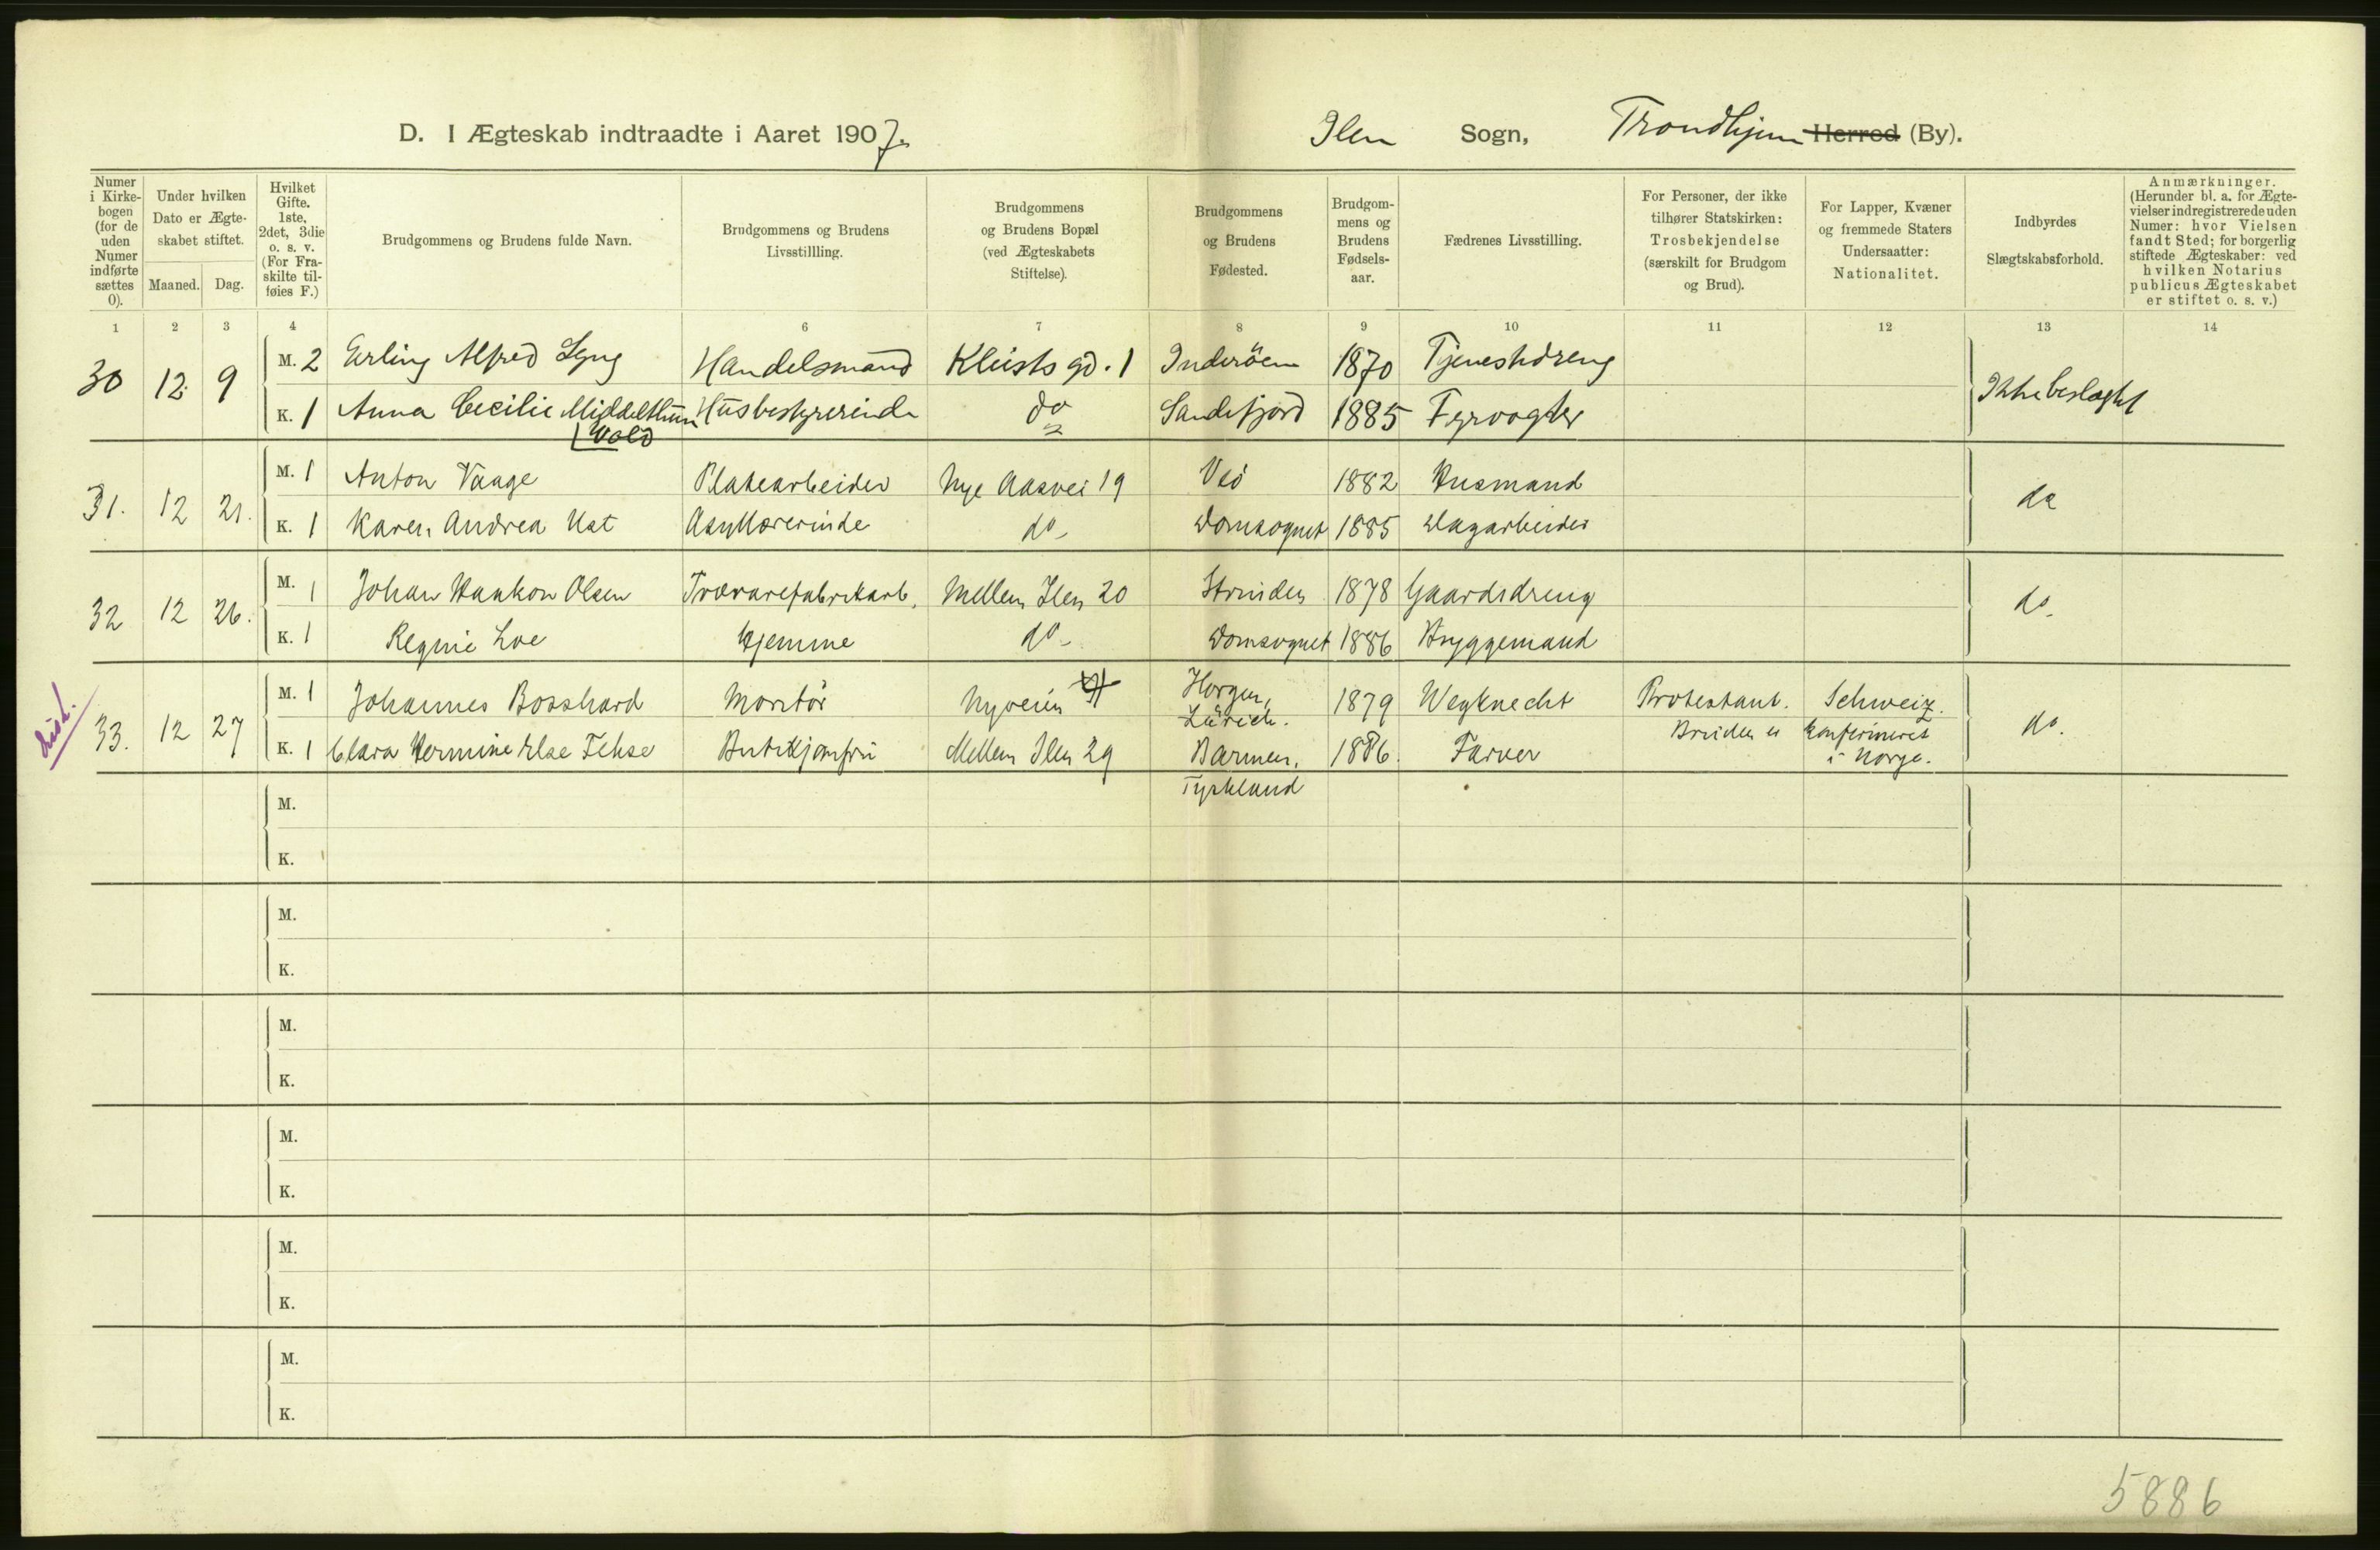 D. I Ægteskab indtraadte i Aaret 1907.
Ilen Sogn, Trondhjem Herred (By).
Numer i Kirkebogen (for de uden Numer indførte sættes 0).
Under hvilken Dato er Ægteskabet stiftet.
Maaned. Dag.
Hvilket Gifte. 1ste, 2det, 3die o. s. v. (For Fraskilte tilføies F.)
Brudgommens og Brudens fulde Navn.
Brudgommens og Brudens Livsstillling.
Brudgommens og Brudens Bopæl (ved Ægteskabets Stiftelse).
Brudgommens og Brudens Fødested.
Brudgommens og Brudens Fødselsaar.
Fædrenes Livsstilling.
For Personer, der ikke tilhører Statskirken: Trosbekjendelse (særskilt for Brudgom og Brud).
For Lapper, Kvæner og fremmede Staters Undersaatter: Nationalitet.
Indbyrdes Slægtskabsforhold.
Anmærkninger. (Herunder bl. a. for Ægtevielser indregistrerede uden Numer: hvor Vielsen fandt Sted; for borgerlig stiftede Ægteskaber: ved hvilken Notarius publicus Ægteskabet er stiftet o. s. v.)
1 2 3 4 6 7 8 9 10 11 12 13 14
30 12 9 M. 2 Erling Alfred Lyng Handelsmand Kleists gd. 1 Inderöen 1870 Tjenestdreng Ikke beslagtet
K. 1 Anna Cecilie Middelthun Husbestyrerinde do Sandefjord 1885 Fyrvogter
Vold
31. 12 21. M. 1 Anton Vaage Platearbeider Nye Aasvei 19 Veö 1882 Husmand do
K. 1 Karen Andrea Ust do - Domsognet 1885 Dagarbeider
32 12 26. M. 1 Johan Haakon Olsen Trævarefabrikarb. Mellem Ilen 20 Strinden 1878 Gaardsdreng do.
K. 1 Regine Loe Hjemme do - Domsognet 1886 Bryggemand
33. 12 27 M. 1 Johannes Bosshard Montör Nyveien Horgen, Zürich. 1879 Wegknecht Protestant. Schweiz. do.
K. 1 Clara Hermine Else Fehse Butikjomfru Mellem Ilen 29 Barmen, Tyskland 1886. Farver Bruden er konfirmeret i Norge.
M.
K.
M.
K.
M.
K.
M.
K.
M.
K.
M.
K.
5886